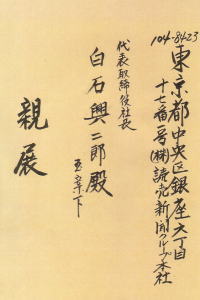 104-8423
東京都中央区銀座六丁目
十七番一号(株)読売新聞グループ本社
代表取締役社長
白石興二郎殿
玉案下
親展